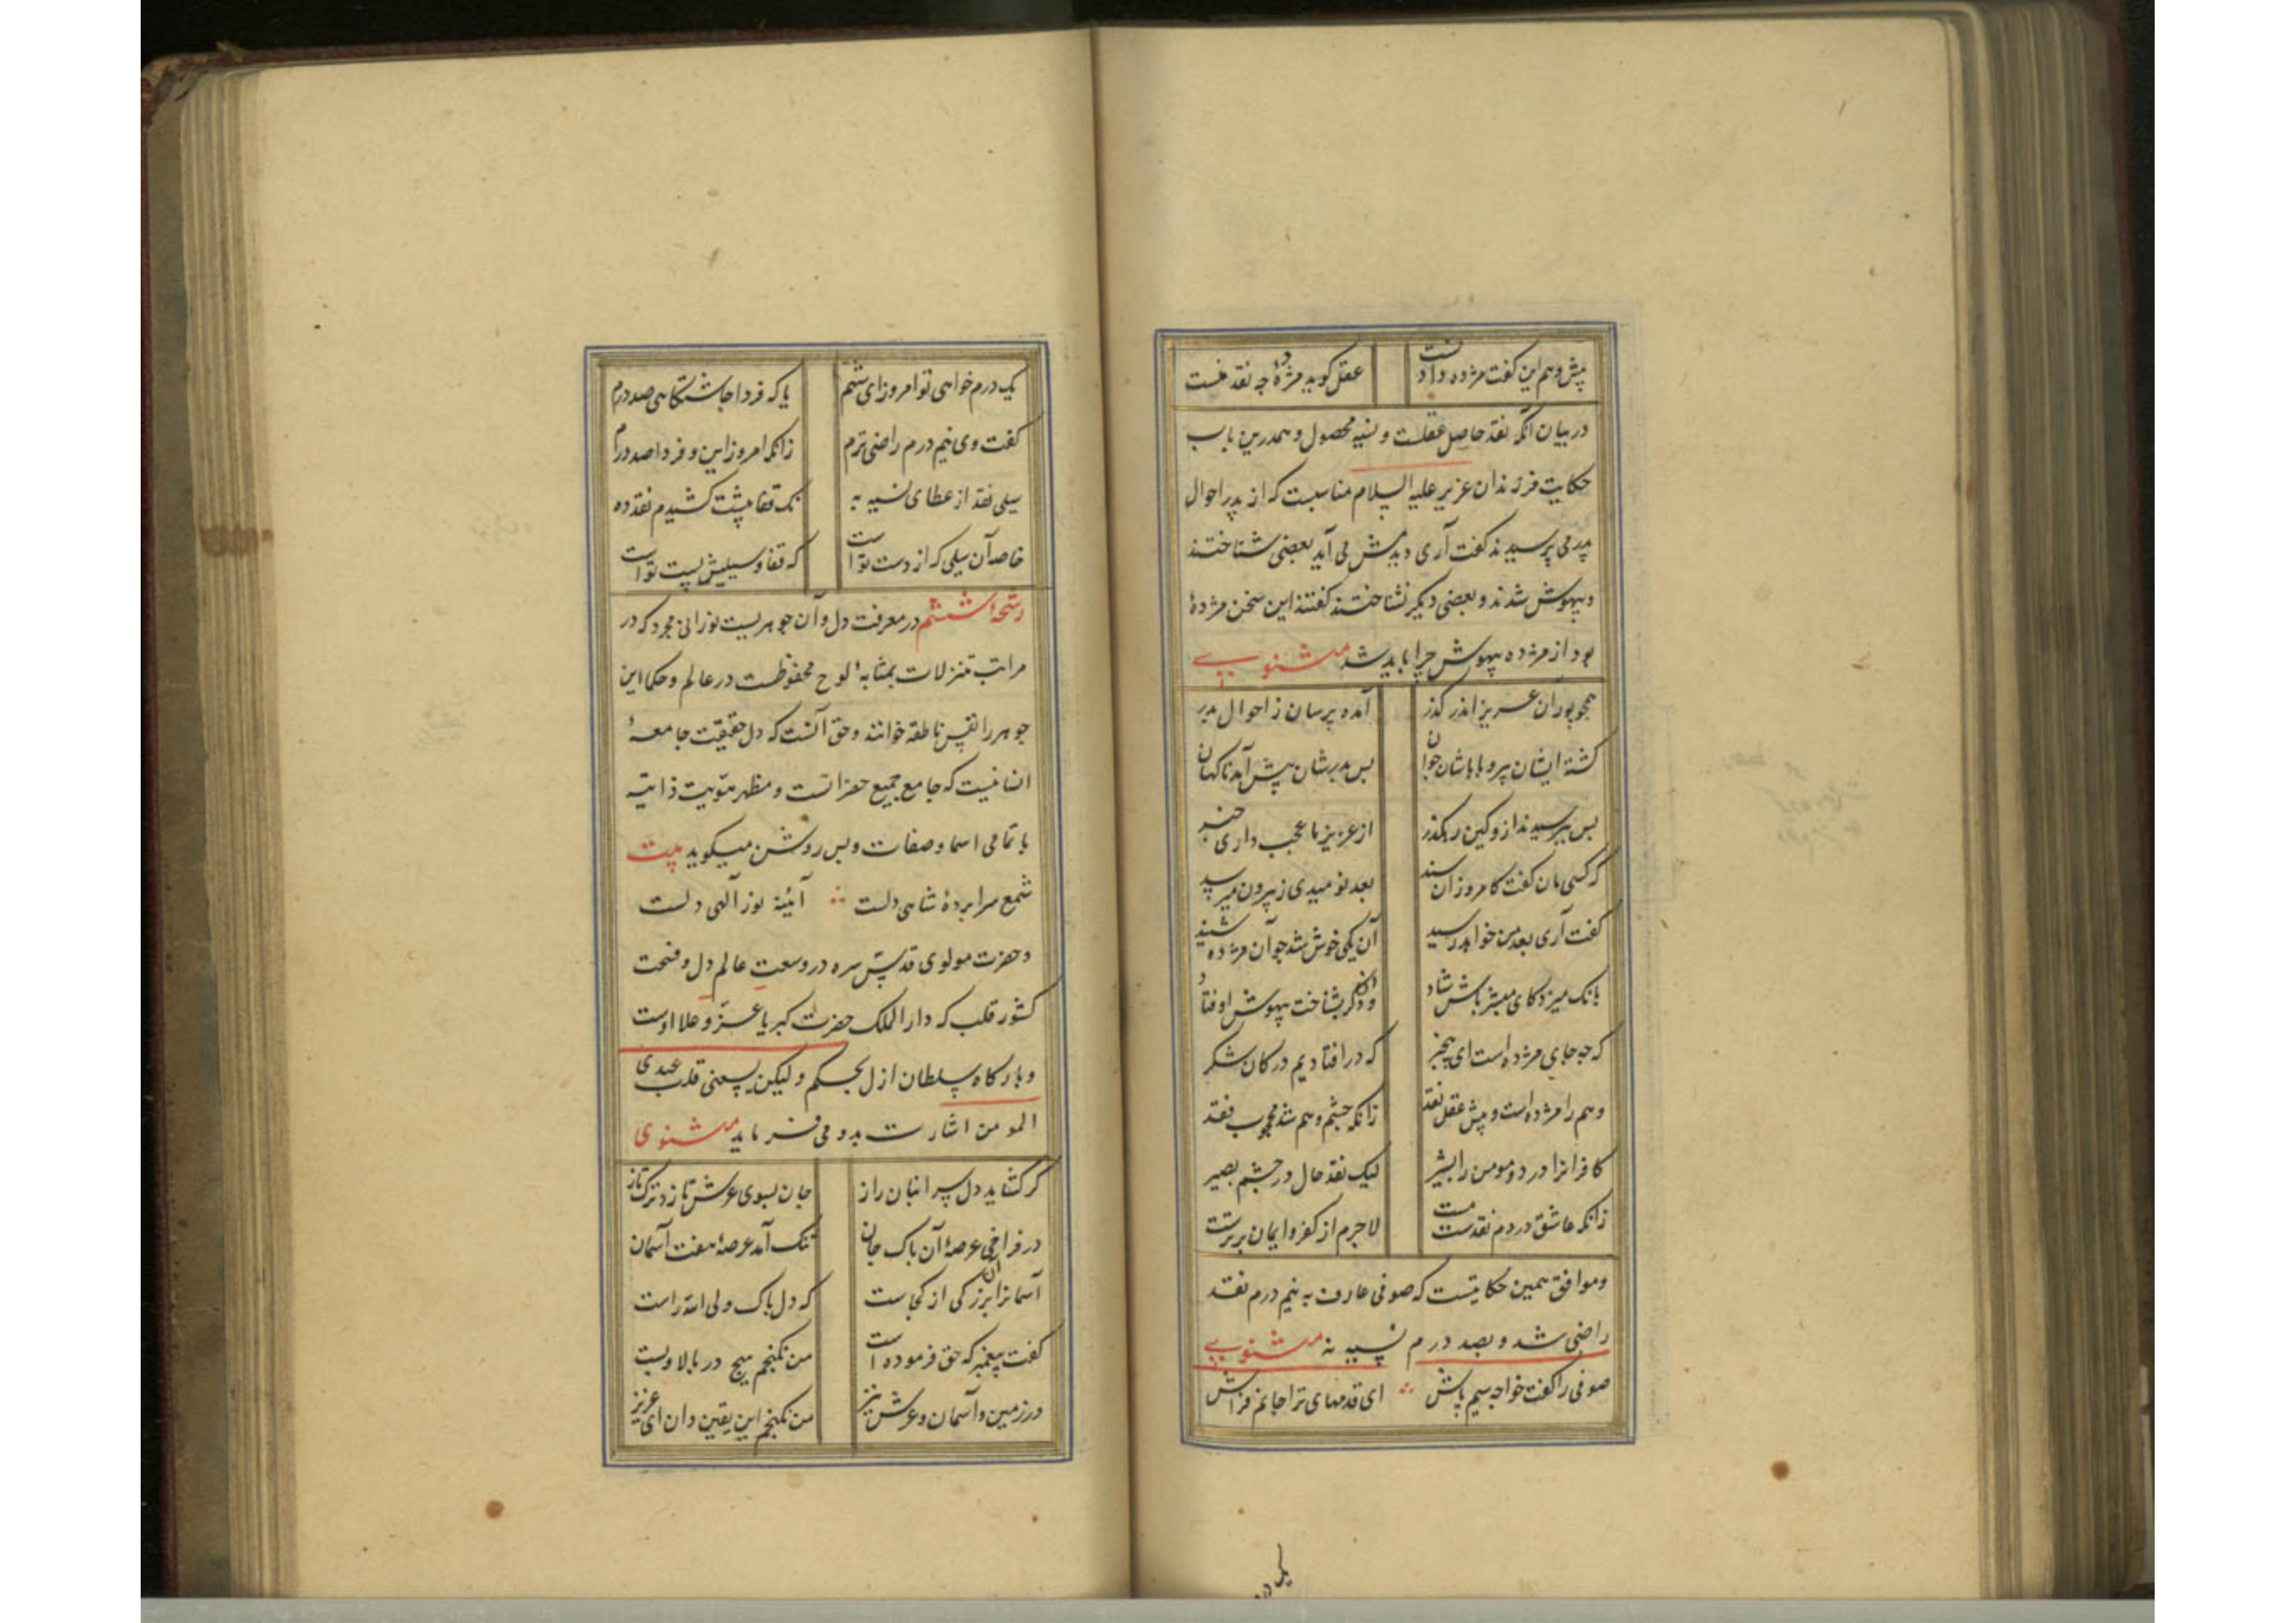 پیش وهم این گفت مژده دادنست عقل گوید مژدهٔ چه نقد منست
در بیان آنکه نقد حاصل عقلست و نسیه محصول و همدرین باب
حکایت فرزندان عزیر علیه السلام مناسبست که از پدر احوال
پدر می پرسیدند گفت آری دیدمش می آید بعضی شناختند
و بیهوش شدند و بعضی دیگر نشناختند گفتند این سخن مژدهٔ
بود از مژده بیهوش چرا باید شد مثنوی
همچو پوران عزیز اندر گذر آمده پرسان ز احوال پدر
گشته ایشان پیر و باباشان جوان پس پدرشان پیش آمد ناگهان
پس بپرسیدند ازو کین رهگذر از عزیز ما عجب داری خبر
که کسی مان گفت کامروز آن سند بعد نومیدی ز بیرون میرسد
گفت آری بعد من خواهد رسید آن یکی خوش شد چو آن مژده شنید
بانگ میزد کای مبشر باش شاد وان دگر بشناخت بیهوش اوفتاد
که چه جای مژده است ای بیخبر که در افتادیم در کان شکر
وهم را مژده است و پیش عقل نقد زانکه چشم وهم شد محجوب فقد
کافرانرا درد و مومن را بشیر لیک نقد حال در چشم بصیر
زانکه عاشق در دم نقدست مست لاجرم از کفر و ایمان برترست
و موافق همین حکایتست که صوفی عارف به نیم درم نقد
راضی شد و بصد درم نسیه نه مثنوی
صوفی را گفت خواجه سیم پاش ای قدمهای ترا جانم فراش
یک درم
یک درم خواهی تو امروز ای شهم یا که فردا چاشتگاهی صد درم
گفت وی نیم درم راضی ترم زانکه امروز این و فردا صد درم
سیلی نقد از عطای نسیه به نک قفا پیشت کشیدم نقد ده
خاصه آن سیلی که از دست تو است که قفا و سیلیش پست تو است
رشحهٔ ششم در معرفت دل و آن جوهریست نورانی مجرد که در
مراتب تنزلات بمثابه لوح محفوظست در عالم و حکما این
جوهر را نفس ناطقه خوانند و حق آنست که دل حقیقت جامعهٔ
انسانیست که جامع جمیع حضراتست و مظهر هویت ذاتیه
با تمامی اسما و صفات و بس روشن میگوید بیت
شمع سراپردهٔ شاهی دلست آئینهٔ نور آلهی دلست
و حضرت مولوی قدس سره در وسعت عالم دل و فسحت
کشور قلب که دارالملک حضرت کبریا عز و علا اوست
و بارگاه سلطان ازل بحکم و لیکن یسعنی قلب عبدی
المومن اشارت بدو می فرماید مثنوی
گر گشاید دل سر انبان راز جان بسوی عرش تازد ترکتاز
در فراخی عرصهٔ آن پاک جان تنگ آمد عرصهٔ هفت آسمان
آسمانرا آن بزرگی از کجاست که دل پاک ولی الله راست
گفت پیغمبر که حق فرموده است من نگنجم هیچ در بالا و پست
در زمین و آسمان و عرش نیز من نگنجم این یقین دان ای عزیز